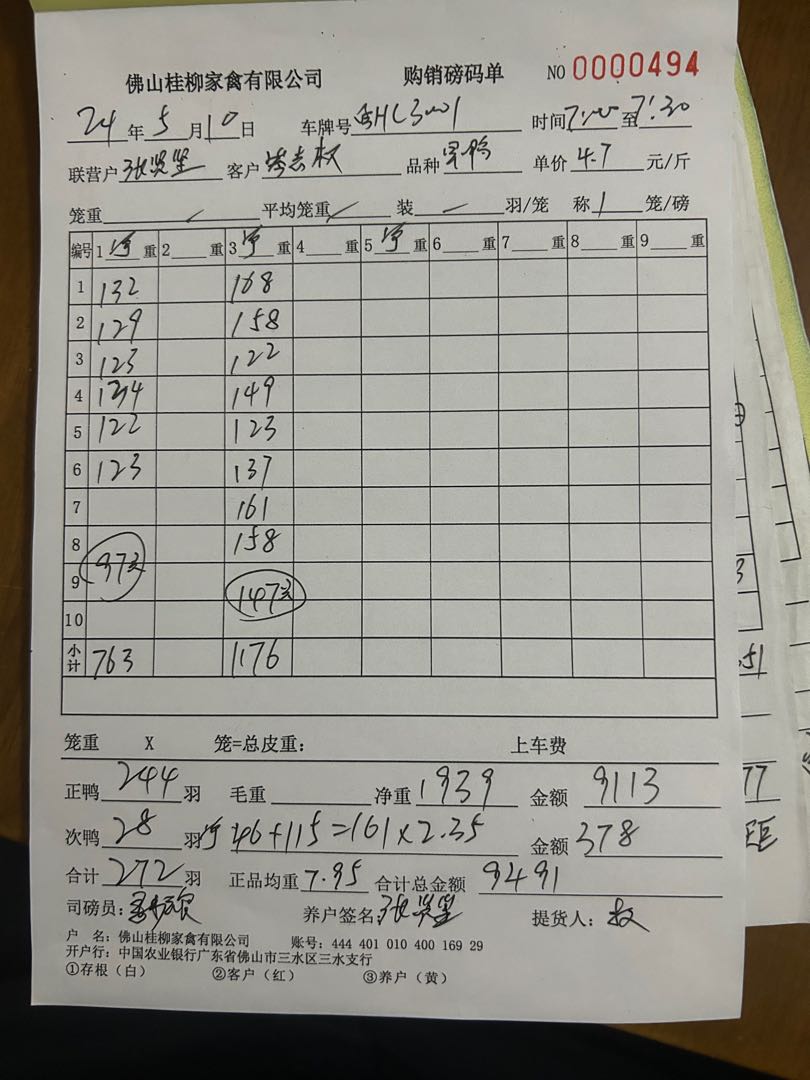 佛山桂柳家禽有限公司 购销磅码单 NO 0000494
24 年 5 月 10 日 车牌号 HC3001 时间 7:00 至 7:30
联营户 张 客户 权 品种 鸭 单价 4.7 元/斤
笼重 / 平均笼重 / 装 / 羽/笼 称 1 笼/磅
编号 1 净 重 2 重 3 净 重 4 重 5 净 重 6 重 7 重 8 重 9 重
1 132 168
2 129 158
3 123 122
4 134 149
5 122 123
6 123 137
7 161
8 158
9 97只 147只
10
小计 763 1176
笼重 X 笼=总皮重: 上车费
正鸭 244 羽 毛重 净重 1939 金额 9113
次鸭 28 羽 净 46+115=161×2.35 金额 378
合计 272 羽 正品均重 7.95 合计总金额 9491
司磅员: 养户签名 张 提货人: 权
户 名: 佛山桂柳家禽有限公司 账号: 444 401 010 400 169 29
开户行: 中国农业银行广东省佛山市三水区三水支行
①存根(白) ②客户(红) ③养户(黄)